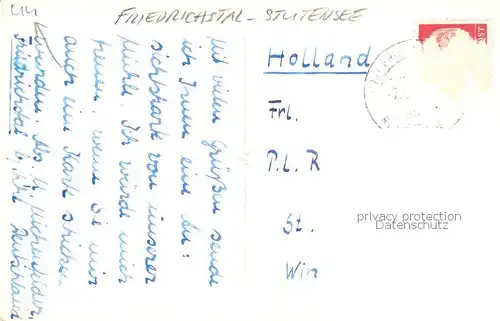 FRIEDRICHSTAL - STUTENSEE
Mit vielen Grüßen sende
ich Ihnen eine An:
sichtskark von unserer
Mühle. Ich würde mich
freuen, wenn Sie mir
auch eine Kark schicken
würden. Abs.
Friedrichstal b. Khe Deutschland
Holland
Frl.
P. L. R
St.
Win
privacy protection
Datenschutz